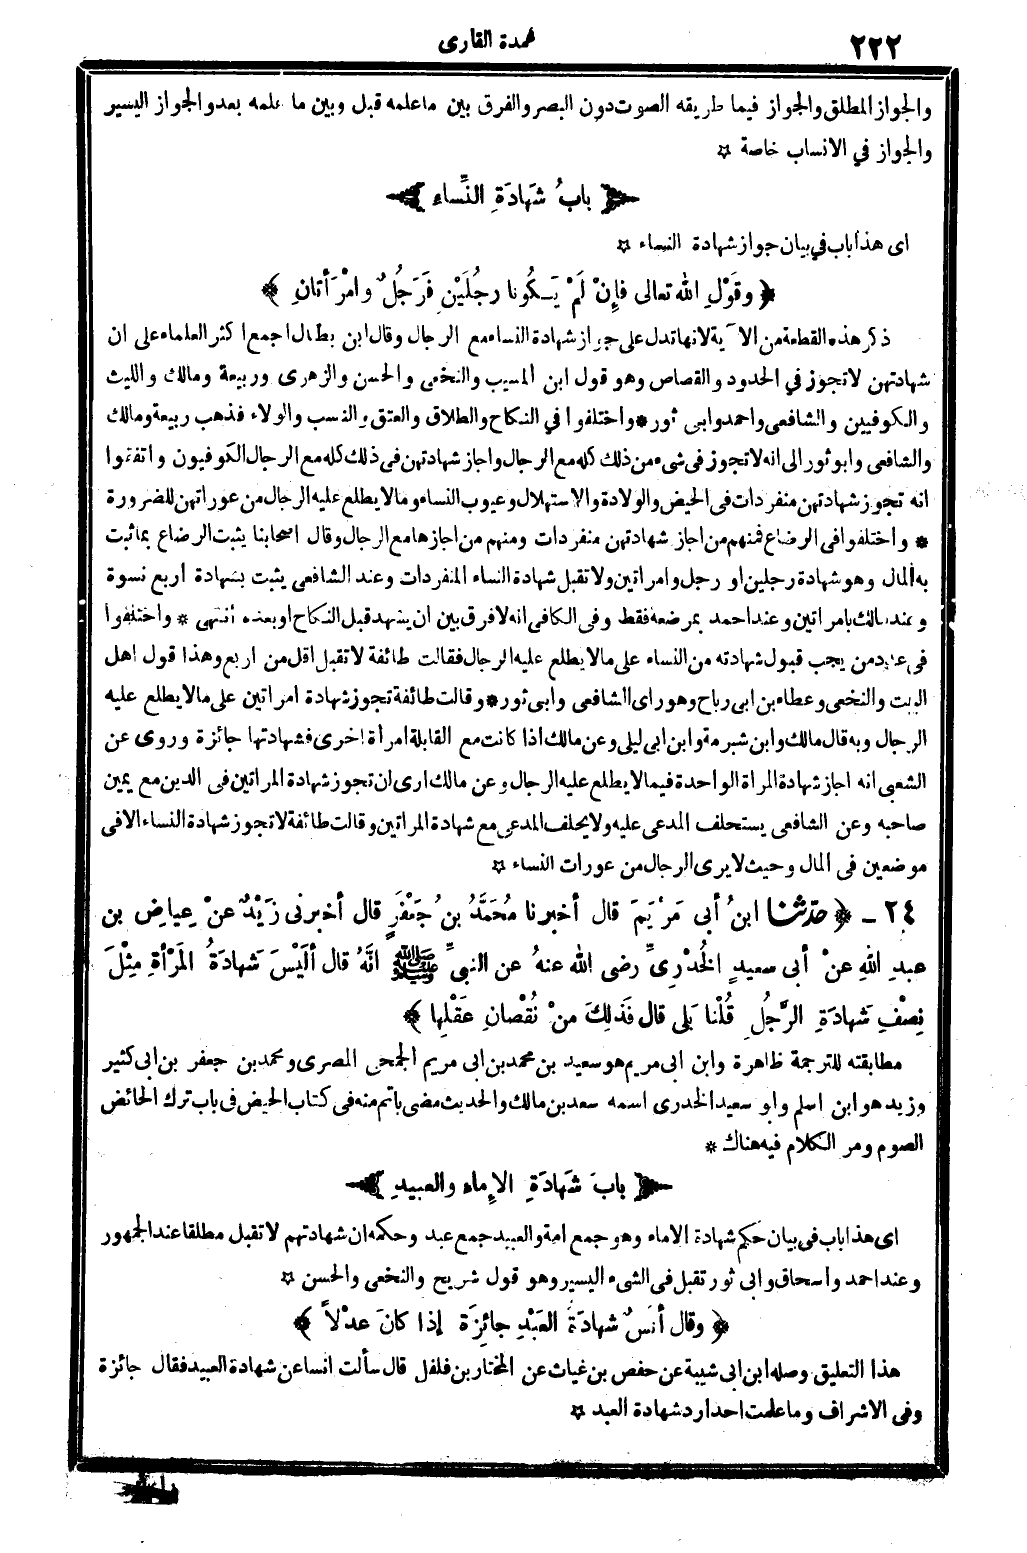 ٢٢٢
عمدة القارى
والجواز المطلق والجواز فيما طريقه الصوت دون البصر والفرق بين ماعلمه قبل وبين ما علمه بعد والجواز اليسير
والجواز في الانساب خاصة ✡
﴿ بابُ شَهَادَةِ النِّساء ﴾
اى هذا باب في بيان جواز شهادة النساء ✡
﴿ وقَوْلِ الله تعالى فإِنْ لَمْ يَـكُونا رجُلَيْنِ فَرَجُلٌ وامْرَأتانِ ﴾
ذكر هذه القطعة من الآية لانها تدل على جواز شهادة النساء مع الرجال وقال ابن بطال اجمع اكثر العلماء على ان
شهادتهن لا تجوز في الحدود والقصاص وهو قول ابن المسيب والنخعى والحسن والزهرى وربيعة ومالك والليث
والكوفيين والشافعى واحمد وابى ثور * واختلفوا في النكاح والطلاق والعتق والنسب والولاء فذهب ربيعة ومالك
والشافعى وابو ثور الى انه لا تجوز فى شىء من ذلك كله مع الرجال واجاز شهادتهن فى ذلك كله مع الرجال الكوفيون واتفقوا
انه تجوز شهادتهن منفردات فى الحيض والولادة والاستهلال وعيوب النساء ومالا يطلع عليه الرجال من عوراتهن للضرورة
* واختلفوا فى الرضاع فمنهم من اجاز شهادتهن منفردات ومنهم من اجازها مع الرجال وقال اصحابنا يثبت الرضاع بما ثبت
به المال وهو شهادة رجلين او رجل وامراتين ولا تقبل شهادة النساء المنفردات وعند الشافعى يثبت بشهادة اربع نسوة
وعند مالك بامراتين وعند احمد بمرضعة فقط وفى الكافى انه لا فرق بين ان يشهد قبل النكاح او بعده انتهى * واختلفوا
فى عدد من يجب قبول شهادته من النساء على مالا يطلع عليه الرجال فقالت طائفة لا تقبل اقل من اربع وهذا قول اهل
البيت والنخعى وعطاء بن ابى رباح وهو راى الشافعى وابى ثور * وقالت طائفة تجوز شهادة امراتين على مالا يطلع عليه
الرجال وبه قال مالك وابن شبرمة وابن ابى ليلى وعن مالك اذا كانت مع القابلة امرأة اخرى فشهادتها جائزة وروى عن
الشعبى انه اجاز شهادة المرأة الواحدة فيما لا يطلع عليه الرجال وعن مالك ارى ان تجوز شهادة المراتين فى الدين مع يمين
صاحبه وعن الشافعى يستحلف المدعى عليه ولا يحلف المدعى مع شهادة المراتين وقالت طائفة لا تجوز شهادة النساء الا فى
موضعين فى المال وحيث لا يرى الرجال من عورات النساء ✡
٢٤ ـ ﴿ حدّثنا ابنُ أبى مَرْيَمَ قال أخبرنا مُحَمَّدُ بنُ جَعْفَرٍ قال أخبرنى زَيْدٌ عنْ عِياضِ بنِ
عبدِ اللهِ عنْ أبى سعيدٍ الخُدْرِىِّ رضى الله عنهُ عن النبىِّ ﷺ أنَّهُ قال ألَيْسَ شَهادَةُ المَرْأةِ مِثْلَ
نِصْفِ شَهادَةِ الرَّجُلِ قُلْنا بَلى قال فَذلِكَ منْ نُقْصانِ عَقْلِها ﴾
مطابقته للترجمة ظاهرة وابن ابى مريم هو سعيد بن محمد بن ابى مريم الجمحى المصرى ومحمد بن جعفر بن ابى كثير
وزيد هو ابن اسلم وابو سعيد الخدرى اسمه سعد بن مالك والحديث مضى باتم منه فى كتاب الحيض فى باب ترك الحائض
الصوم ومر الكلام فيه هناك *
﴿ بابُ شَهَادَةِ الإِماءِ والعبيدِ ﴾
اى هذا باب فى بيان حكم شهادة الاماء وهو جمع امة والعبيد جمع عبد وحكمه ان شهادتهم لا تقبل مطلقا عند الجمهور
وعند احمد واسحاق وابى ثور تقبل فى الشىء اليسير وهو قول شريح والنخعى والحسن ✡
﴿ وقال أنَسٌ شهادَةُ العَبْدِ جائِزَةٌ إذا كانَ عدْلاً ﴾
هذا التعليق وصله ابن ابى شيبة عن حفص بن غياث عن المختار بن فلفل قال سألت انسا عن شهادة العبيد فقال جائزة
وفى الاشراف وما علمت احدا رد شهادة العبد ✡